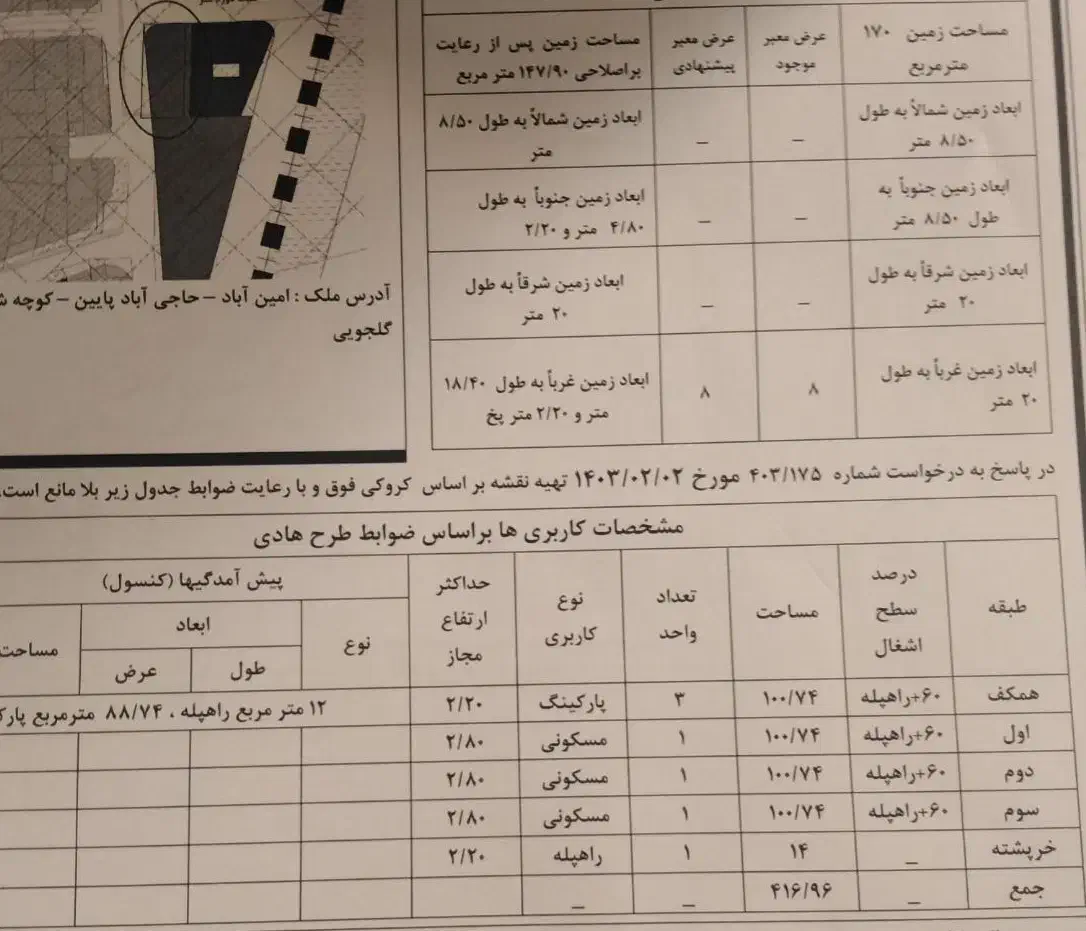 مساحت زمین ۱۷۰ مترمربع
عرض معبر موجود
عرض معبر پیشنهادی
مساحت زمین پس از رعایت براصلاحی ۱۴۷/۹۰ متر مربع
ابعاد زمین شمالاً به طول ۸/۵۰ متر
_
_
ابعاد زمین شمالاً به طول ۸/۵۰ متر
ابعاد زمین جنوباً به طول ۸/۵۰ متر
_
_
ابعاد زمین جنوباً به طول ۴/۸۰ متر و ۲/۲۰
ابعاد زمین شرقاً به طول ۲۰ متر
_
_
ابعاد زمین شرقاً به طول ۲۰ متر
ابعاد زمین غرباً به طول ۲۰ متر
۸
۸
ابعاد زمین غرباً به طول ۱۸/۴۰ متر و ۲/۲۰ متر پخ
آدرس ملک : امین آباد – حاجی آباد پایین – کوچه
گلجویی
در پاسخ به درخواست شماره ۴۰۳/۱۷۵ مورخ ۱۴۰۳/۰۲/۰۲ تهیه نقشه بر اساس کروکی فوق و با رعایت ضوابط جدول زیر بلا مانع است.
مشخصات کاربری ها براساس ضوابط طرح هادی
طبقه
درصد سطح اشغال
مساحت
تعداد واحد
نوع کاربری
حداکثر ارتفاع مجاز
پیش آمدگیها (کنسول)
نوع
ابعاد
طول
عرض
مساحت
همکف ۶۰+راهپله ۱۰۰/۷۴ ۳ پارکینگ ۲/۲۰ ۱۲ متر مربع راهپله ، ۸۸/۷۴ مترمربع
اول ۶۰+راهپله ۱۰۰/۷۴ ۱ مسکونی ۲/۸۰
دوم ۶۰+راهپله ۱۰۰/۷۴ ۱ مسکونی ۲/۸۰
سوم ۶۰+راهپله ۱۰۰/۷۴ ۱ مسکونی ۲/۸۰
خرپشته _ ۱۴ ۱ راهپله ۲/۲۰
جمع _ ۴۱۶/۹۶ _ _